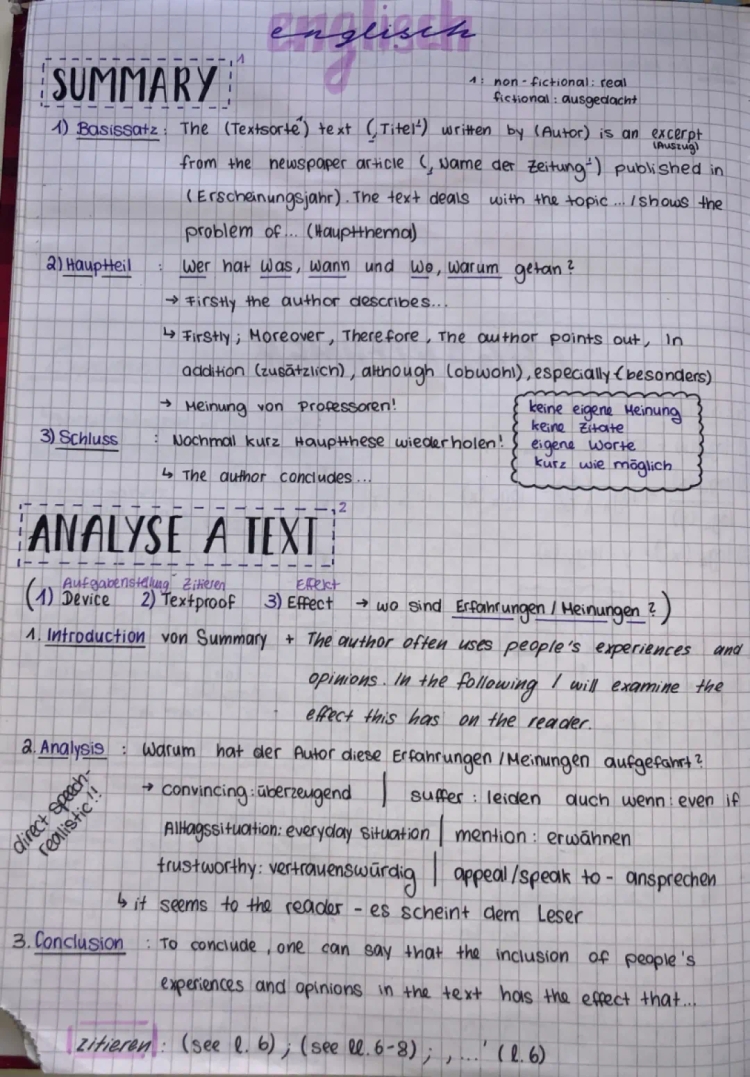 englisch
englisch
SUMMARY 1
1: non-fictional: real
fictional: ausgedacht
1) Basissatz: The (Textsorte¹) text (‚Titel') written by (Autor) is an excerpt
(Auszug)
from the newspaper article (‚Name der Zeitung') published in
(Erscheinungsjahr). The text deals with the topic... / shows the
problem of... (Hauptthema)
2) Hauptteil : Wer hat Was, wann und Wo, warum getan?
→ Firstly the author describes...
↳ Firstly; Moreover, Therefore, The author points out, In
addition (zusätzlich), although (obwohl), especially (besonders)
→ Meinung von Professoren!
3) Schluss : Nochmal kurz Hauptthese wiederholen!
↳ The author concludes...
keine eigene Meinung
keine Zitate
eigene Worte
kurz wie möglich
ANALYSE A TEXT 2
Aufgabenstellung Zitieren Effekt
(1) Device 2) Textproof 3) Effect → wo sind Erfahrungen / Meinungen?)
1. Introduction von Summary + The author often uses people's experiences and
opinions. In the following I will examine the
effect this has on the reader.
2. Analysis : Warum hat der Autor diese Erfahrungen / Meinungen aufgefahrt?
direct speech-
realistic!!
→ convincing: überzeugend | suffer: leiden auch wenn: even if
Alltagssituation: everyday situation | mention: erwähnen
trustworthy: vertrauenswürdig | appeal/speak to - ansprechen
↳ it seems to the reader - es scheint dem Leser
3. Conclusion : To conclude, one can say that the inclusion of people's
experiences and opinions in the text has the effect that...
zitieren: (see l. 6); (see ll. 6-8); ‚...' (l. 6)